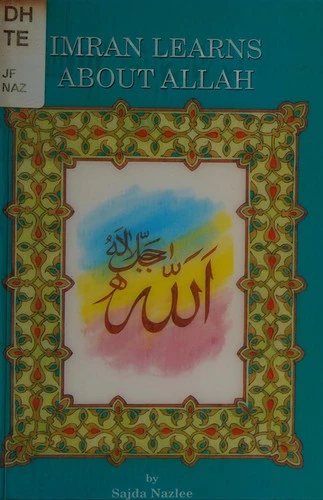 DH
TE
JF
NAZ
IMRAN LEARNS
ABOUT ALLAH
الله
by
Sajda Nazlee